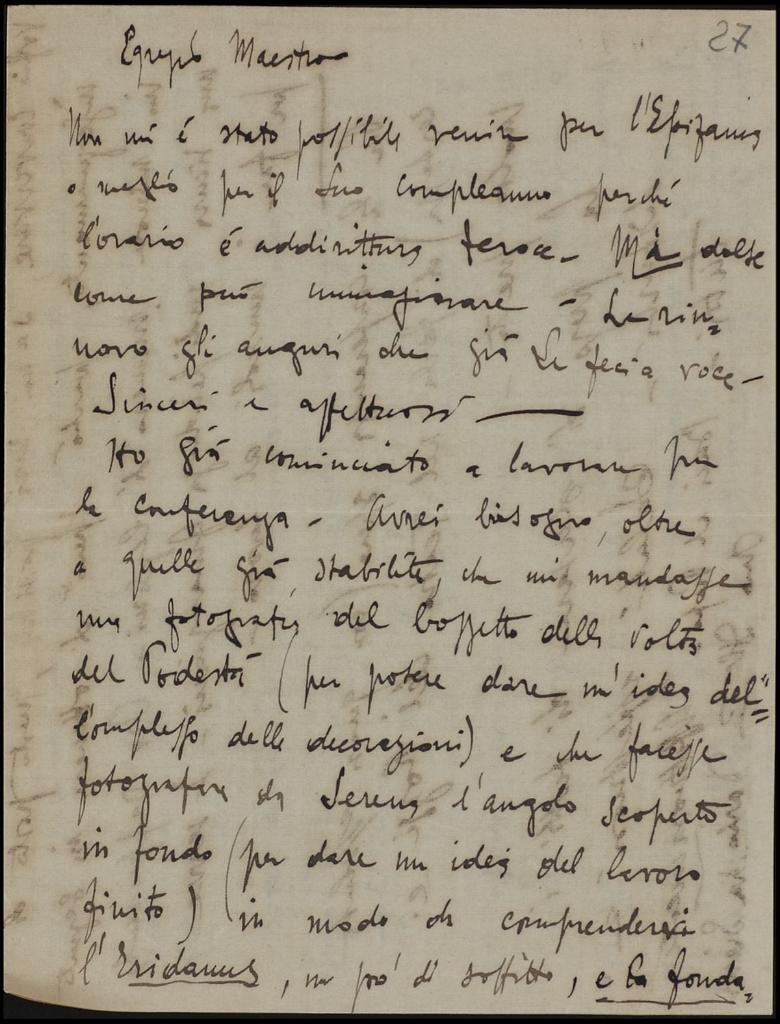 27
Egregio Maestro
Non mi è stato possibile venire per l'Epifania
o meglio per il Suo compleanno perché
l'orario é addirittura feroce - Ma dalse
come può immaginare - Le rin=
novo gli auguri che già Le feci a voce -
Sinceri e affettuosi —
Ho già cominciato a lavorare per
la conferenza - Avrei bisogno, oltre
a quelle già stabilite, che mi mandasse
una fotografia del bozzetto della volta
del Podestà (per potere dare un'idea del"=
l'omplesso delle decorazioni) e che facesse
fotografare da Serena l'angolo scoperto
in fondo (per dare un idea del lavoro
finito) in modo da comprendervi
l'Eridanus, un po' di soffitto, e la fonda=